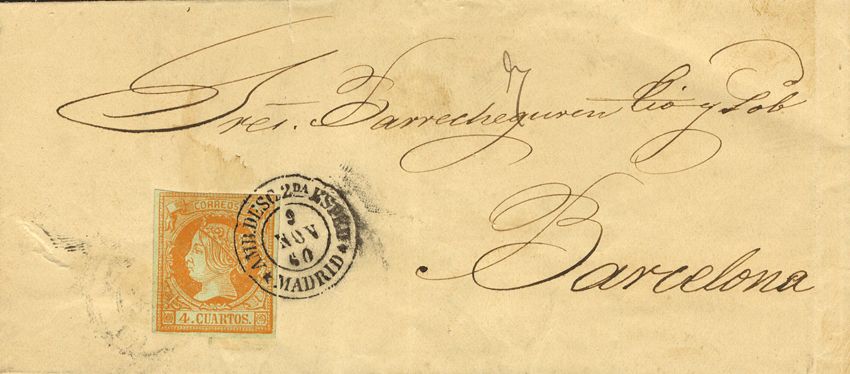 Sres. Barrecheguren Tio y Sob
Barcelona
CORREOS
4 CUARTOS.
AMB. DESC. 2DA EXPED
9
NOV
60
MADRID